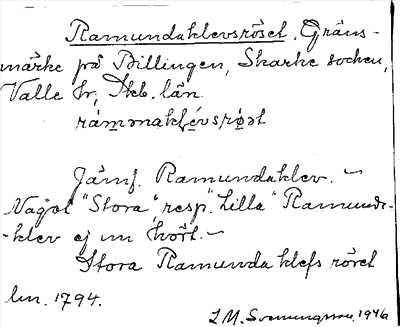 Ramundaklevsröset. Gräns-
märke på Billingen, Skarke socken,
Valle hr, Skb. län.
rámmaklévsrøst
Jämf. Ramundaklev. –
Något "Stora", resp. "Lilla" Ramunda-
-klev ej un hört. –
Stora Ramunda klefs röret
lm. 1794.
I. M. Svenungsson. 1946